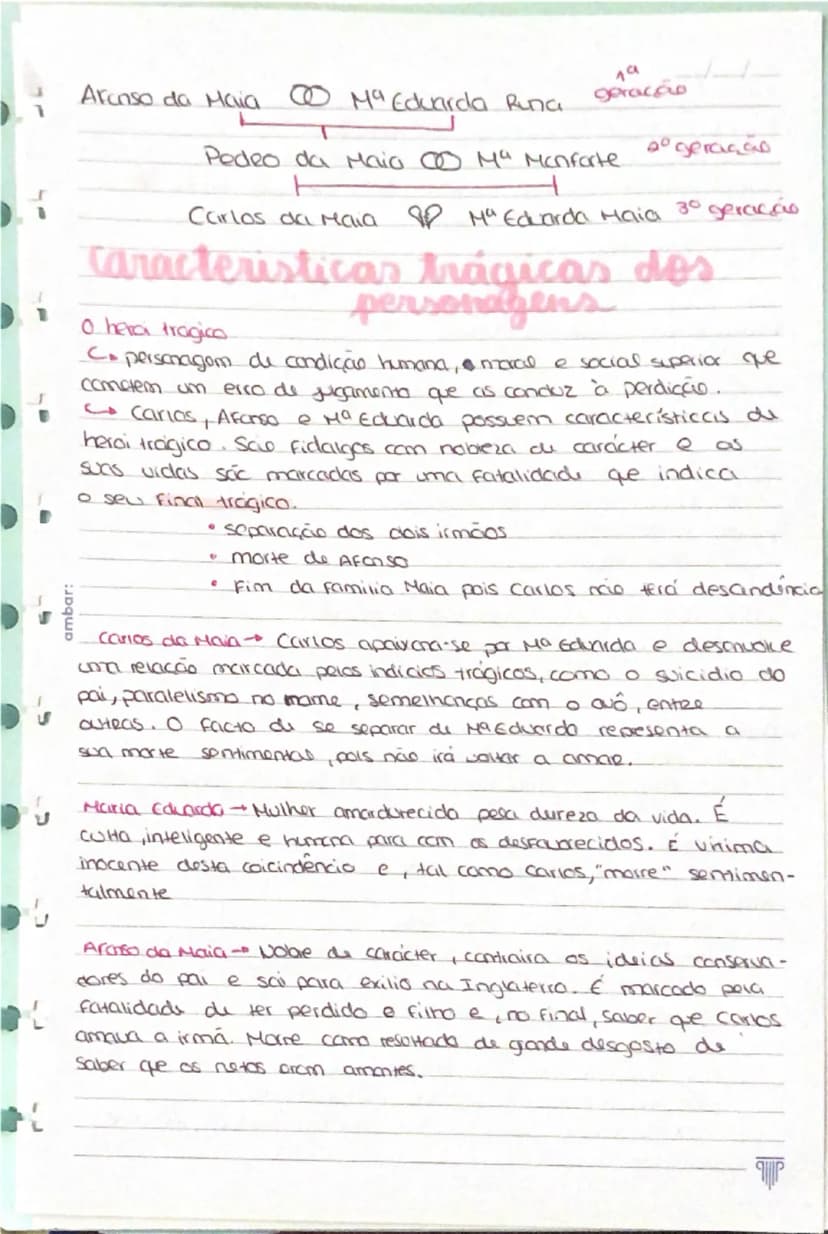 1ª
Afonso da Maia ⚭ Mª Eduarda Runa geração
Pedro da Maia ⚭ Mª Monforte 2º geração
Carlos da Maia Mª Eduarda Maia 3º geração
Características trágicas dos
personagens
O herói trágico
↳ personagem de condição humana, moral e social superior que
cometem um erro de julgamento que as conduz à perdicção.
↳ Carlos, Afonso e Mª Eduarda possuem características de
herói trágico. São fidalgos com nobreza de carácter e as
suas vidas são marcadas por uma fatalidade que indica
o seu final trágico.
• separação dos dois irmãos
• morte de Afonso
• Fim da família Maia pois Carlos não terá descandência
ambar:
Carlos da Maia → Carlos apaixona-se por Mª Eduarda e desenvolve
uma relação marcada pelos indícios trágicos, como o suicídio do
pai, paralelismo no nome, semelhanças com o avô, entre
outras. O facto de se separar de Mª Eduarda representa a
sua morte sentimental, pois não irá voltar a amar.
Maria Eduarda → Mulher amardurecida pela dureza da vida. É
culta, inteligente e humana para com os desfavorecidos. É vítima
inocente desta coicindência e, tal como Carlos, "morre" sentimen-
talmente
Afonso da Maia → Nobre de carácter, contraira os ideias conserva-
dores do pai e sai para exílio na Inglaterra. É marcado pela
fatalidade de ter perdido o filho e, no final, saber que Carlos
amava a irmã. Morre como resultado de grande desgosto de
saber que os netos eram amantes.